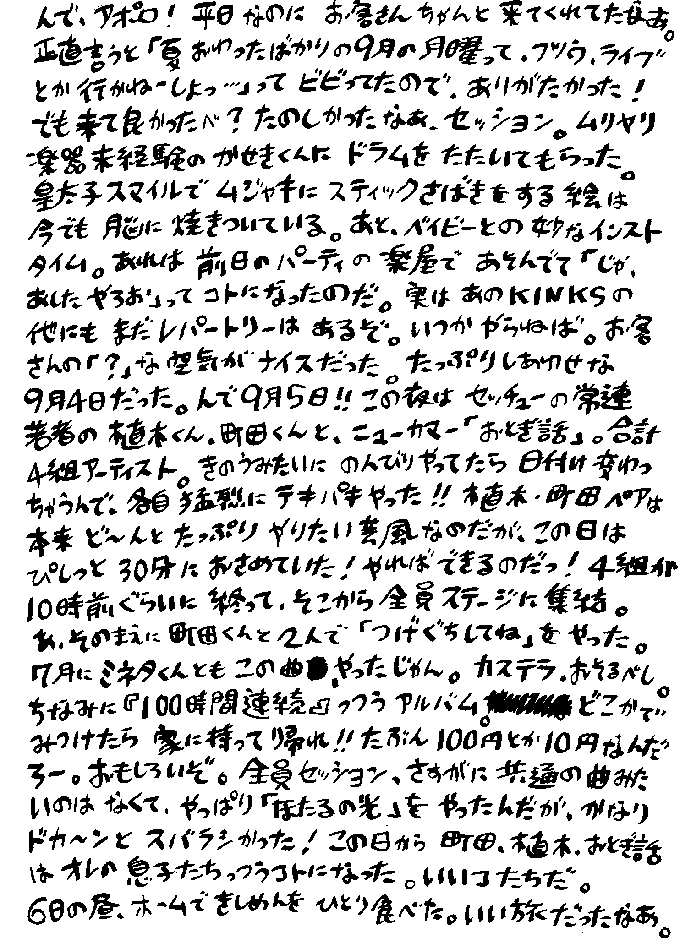 んで、アポロ！ 平日なのに お客さんちゃんと来てくれてたなあ。
正直言うと「夏おわったばかりの9月の月曜って、フツウ、ライブ
とか行かねーしよっ…」ってビビってたので、ありがたかった！
でも来て良かったべ？たのしかったなあ、セッション。ムリヤリ
楽器未経験のかせきくんに ドラムをたたいてもらった。
皇太子スマイルでムジャキに スティックさばきをする絵は
今でも脳に焼きついている。あと、ベイビーとの妙なインスト
タイム。あれは前日のパーティの楽屋であそんでて「じゃ、
あしたやろお」ってコトになったのだ。実はあのKINKSの
他にもまだレパートリーはあるぞ。いつかやらねば。お客
さんの「？」な空気がナイスだった。たっぷりしあわせな
9月4日だった。んで9月5日!! この夜はセッチューの常連
若者の植木くん、町田くんと、ニューカマー「おとぎ話」。合計
4組アーティスト。きのうみたいにのんびりやってたら日付け変わっ
ちゃうんで、各自猛烈にテキパキやった!! 植木・町田ペアは
本来ど〜んとたっぷりやりたい芸風なのだが、この日は
ぴしっと30分におさめていた！やればできるのだっ！4組が
10時前ぐらいに終って、そこから全員ステージに集結。
あ、そのまえに町田くんと2人で「つげぐちしてね」をやった。
7月にミネタくんともこの曲、やったじゃん。カステラ、おそるべし。
ちなみに『100時間連続』っつうアルバム。どこかで
みつけたら家に持って帰れ!! たぶん100円とか10円なんだ
ろー。おもしろいぞ。全員セッション、さすがに共通の曲みた
いのはなくて、やっぱり「ほたるの光」をやったんだが、かなり
ドカ〜ンとスバラシかった！この日から町田、植木、おとぎ話
はオレの息子たちっつうコトになった。いいコたちだ。
6日の昼、ホームできしめんをひとり食べた。いい旅だったなあ。